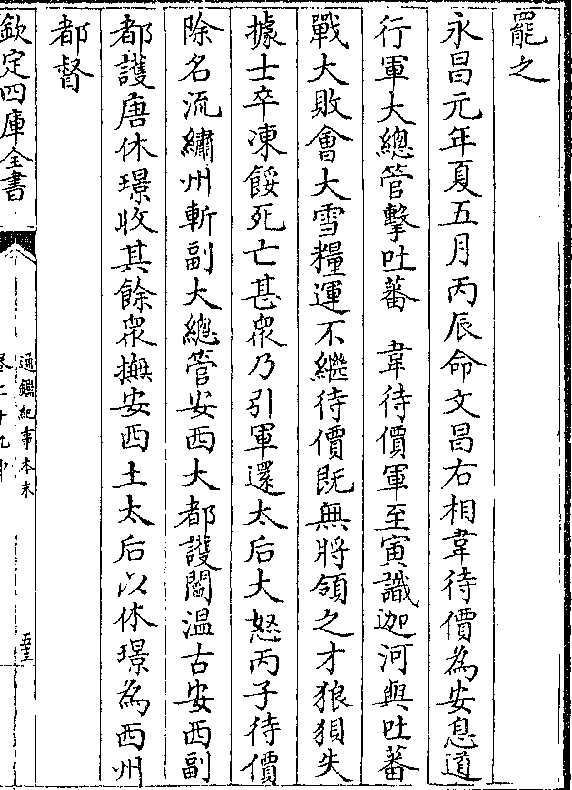 罷之
永昌元年夏五月丙辰命文昌右相韋待價為安息道
行軍大總管擊吐蕃　韋待價軍至寅識迦河與吐蕃
戰大敗會大雪糧運不繼待價既無將領之才狼狽失
據士卒凍餒死亡甚衆乃引軍還太后大怒丙子待價
除名流繡州斬副大總管安西大都護閻温古安西副
都護唐休璟收其餘衆撫安西土太后以休璟為西州
都督
欽定四庫全書
通鑑紀事本末